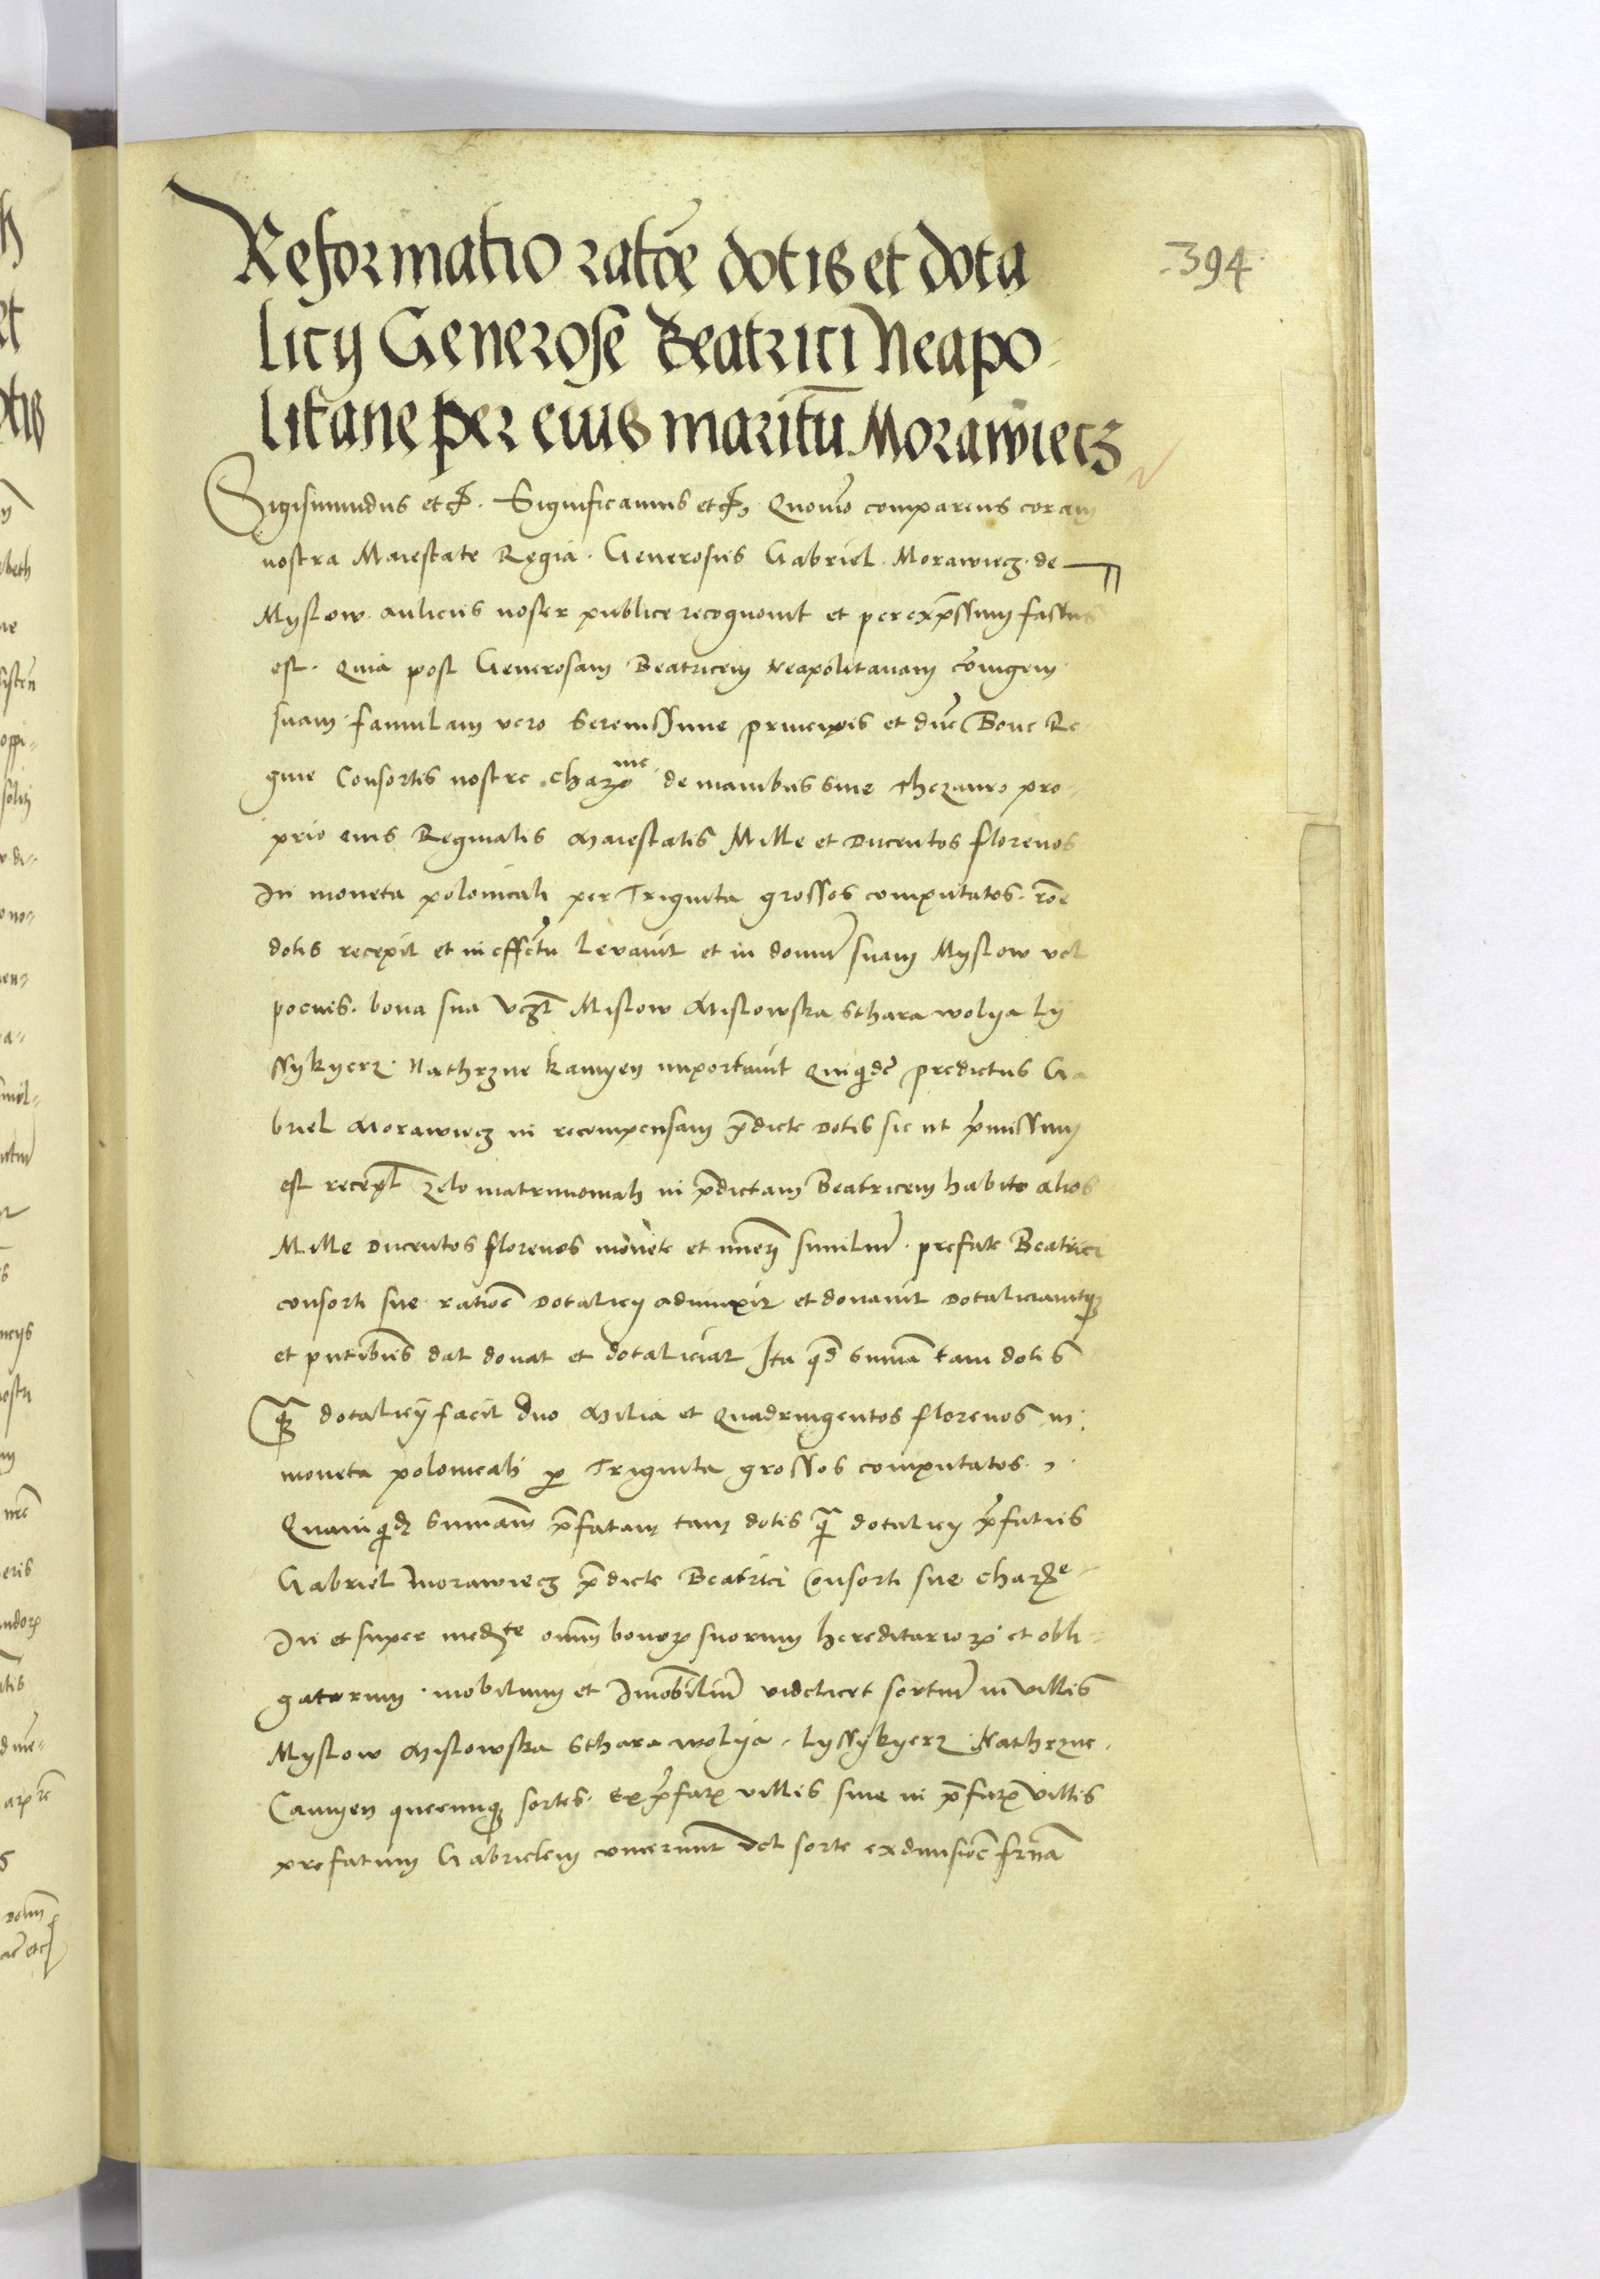 394
Reformatio ratōe dotis et dota
licij Generose Beatrici Neapo-
litane per eius maritū Morawiecz
Sigismundus etc. Significamus etc. Quomo comparens coram
nostra Maiestate Regia. Generosus Gabriel Morawiecz de
Myslow aulicus noster publice recognouit et per exp̄ssum fassus
est. Quia post Generosam Beatricem Neapolitanam cōiugem
suam famulam vero Serenissime principis et dn̄e Bone Re-
gine Consortis nostre charme de manibus siue thezauro pro-
prio eius Reginalis Maiestatis Mille et Ducentos florenos
In moneta polonicali per Triginta grossos computatos rōe
dotis recepit et in effectu leuauit et in domū suam Myslow vel
pocius bona sua Mislow Mislowska Sthara wolya Ly
ssykyerz Nathrzne kamyen importauit Quiquidē predictus Ga
briel Morawiecz in recompensam p̄dicte dotis sic ut p̄missum
est zelo matrimoniali in p̄dictam Beatricem habito alios
Mille Ducentos florenos monete et similiū prefate Beatrici
consorti sue ratiōe dotalicij adiunxit et donauit dotaliciauitq
et pn̄tibus dat donat et dotaliciat Ita qd summa tam dotis
q̄ dotalicij facit duo Milia et Quadringentos florenos in
moneta polonicali p Triginta grossos computatos.
Quamquid summam p̄fatam tam dotis q̄ dotalicij p̄fatus
Gabriel Morawiecz p̄dicte Beatrici Consorti sue charme
In et super medte omnium bonorum suorum hereditariorum et obli-
gatorum mobilium et Immobiliū videlicet sortiū in villis
Myslow Mislowska Sthara wolya Lyssykyerz Nathrzne
Camyen quecunq sortes ex p̄fatis villis siue in p̄fatis villis
prefatum Gabrielem vel sorte ex diuisiōe frn̄a